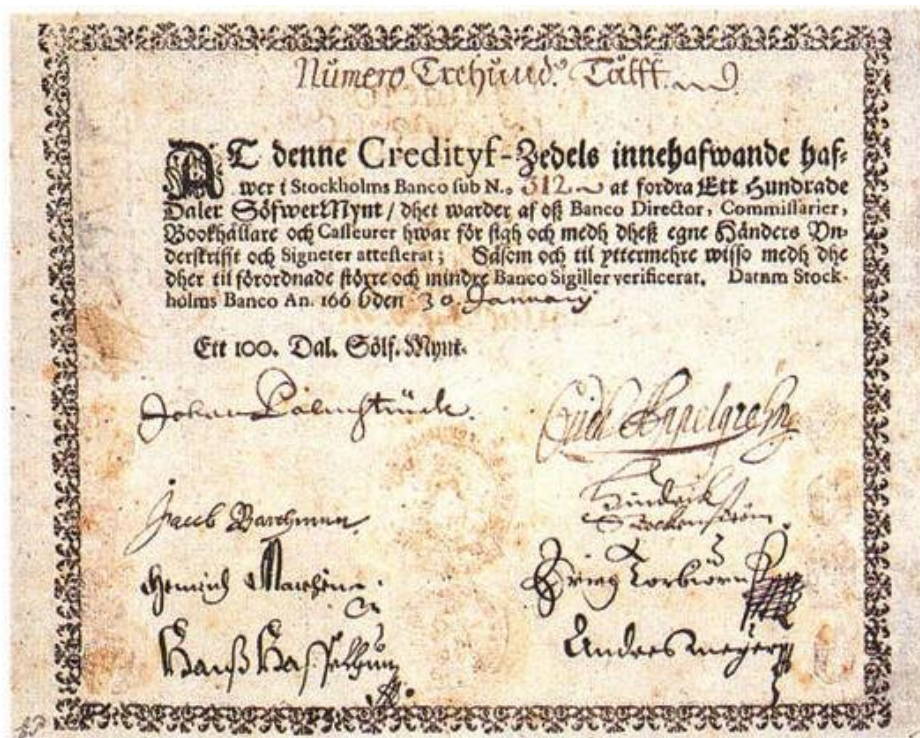 Numero Trehund. Tålfft.
AT denne Credityf-Zedels innehafwande haf-
wer i Stockholms Banco sub N.o 312 at fordra Ett Hundrade
Daler SölfwerMynt / dhet warder af oß Banco Director, Commissarier,
Bookhållare och Casseurer hwar för sigh och medh dheß egne Händers Vn-
derskrifft och Signeter attesterat; Såsom och til yttermehre wisso medh dhe
dher til förordnade större och mindre Banco Sigiller verificerat. Datum Stock-
holms Banco An. 166 6 den 30. January
Ett 100. Dal. Sölf. Mynt.
Johan Palmstruck.
Jacob
Hindrik
Heinrich
Hanß
Anders Meijer